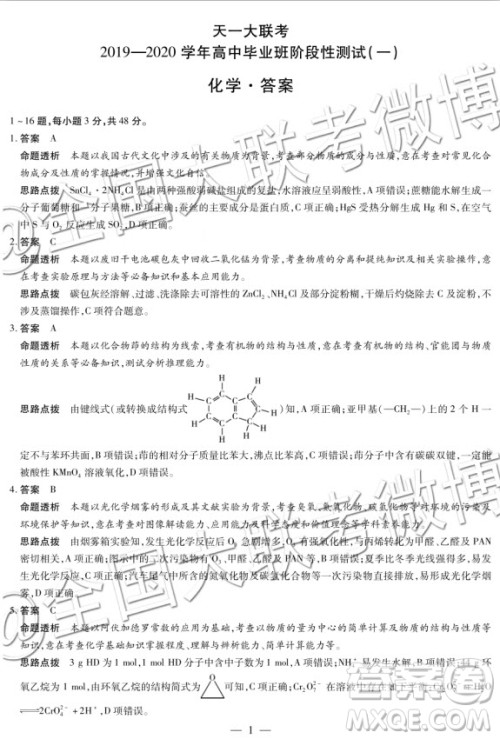 天一大联考
2019—2020 学年高中毕业班阶段性测试(一)
化学·答案
1~16 题,每小题 3 分,共 48 分。
1. 答案 A
命题透析 本题以我国古代文化中涉及的有关物质为背景,考查部分物质的成分与性质,意在考查对常见化合
物成分及性质的掌握情况。
思路点拨 SnCl₄·2NH₄Cl是由两种强酸弱碱盐组成的复盐,水溶液应呈弱酸性,A项错误;蔗糖能水解生成一
分子葡萄糖和一分子果糖,B项正确;蚕丝的主要成分是蛋白质,C项正确;HgS 受热生成 Hg 和 S,在空气
中 S 与 O₂ 反应生成 SO₂,D项正确。
2. 答案 C
命题透析 本题以废旧干电池碳包灰中回收二氧化锰为背景,考查物质的分离和提纯以及相关实验操作,意在
考查实验原理与方法等必备知识和基本能力。
思路点拨 碳包灰经溶解、过滤、洗涤除去可溶性的 ZnCl₂、NH₄Cl 及部分淀粉糊,干燥后灼烧除去 C 及淀粉,不
涉及蒸馏,C项符合题意。
3. 答案 A
命题透析 本题以化合物茚的结构为情境,考查有机物的结构与性质,意在考查有机物的结构、官能团与物质
性质的关系等必备知识,测试分析推理能力。
思路点拨 由键线式(或转换成结构式 )知,A项正确;亚甲基(—CH₂—)上的 2 个 H 一
H H H H H H H H
C C C C C C C C C
定不与苯环共面,B项错误;茚的相对分子质量比苯大,沸点比苯高,C项错误;茚中含有碳碳双键,一定能
被酸性 KMnO₄ 溶液氧化,D项错误。
4. 答案 B
命题透析 本题以光化学烟雾的形成及其文献实验为背景,考查臭氧、氮氧化物、碳氧化物等对环境的污染与
环境保护等知识,意在考查图像解读、应用能力及科学态度和价值观等学科核心素养。
思路点拨 由烟雾箱实验知,发生光化学反应后 O₃ 急剧增多,O₃ 有强氧化性,与丙烯转化为甲醛、乙醛及
PAN 等有关,A项正确;图示中的二次污染物有 O₃、甲醛、乙醛及 PAN 等,B项错误;夏季比冬季光线强得多,易
发生光化学污染,C项正确;汽车尾气中所含的氮氧化物及碳氢化合物等一次污染物易引发光化学烟雾,D项正确。
5. 答案 C
命题透析 本题以阿伏加德罗常数的应用为情境,考查以物质的量为中心的简单计算及物质的结构与变化,意在
考查化学基础知识的掌握、理解与分析能力、简单计算能力等。
思路点拨 3 g HD 为 1 mol,1 mol HD 含 2 mol 电子,A项错误;
氧乙烷为 1 mol,由环氧乙烷的结构简式为 O 可知,C项正确;Cr₂O₇²⁻ 在溶液中存在如下平衡:
⇌2CrO₄²⁻+2H⁺,D项错误。
— 1 —
@全国大联考微博
@全国大联考微博
答案圈